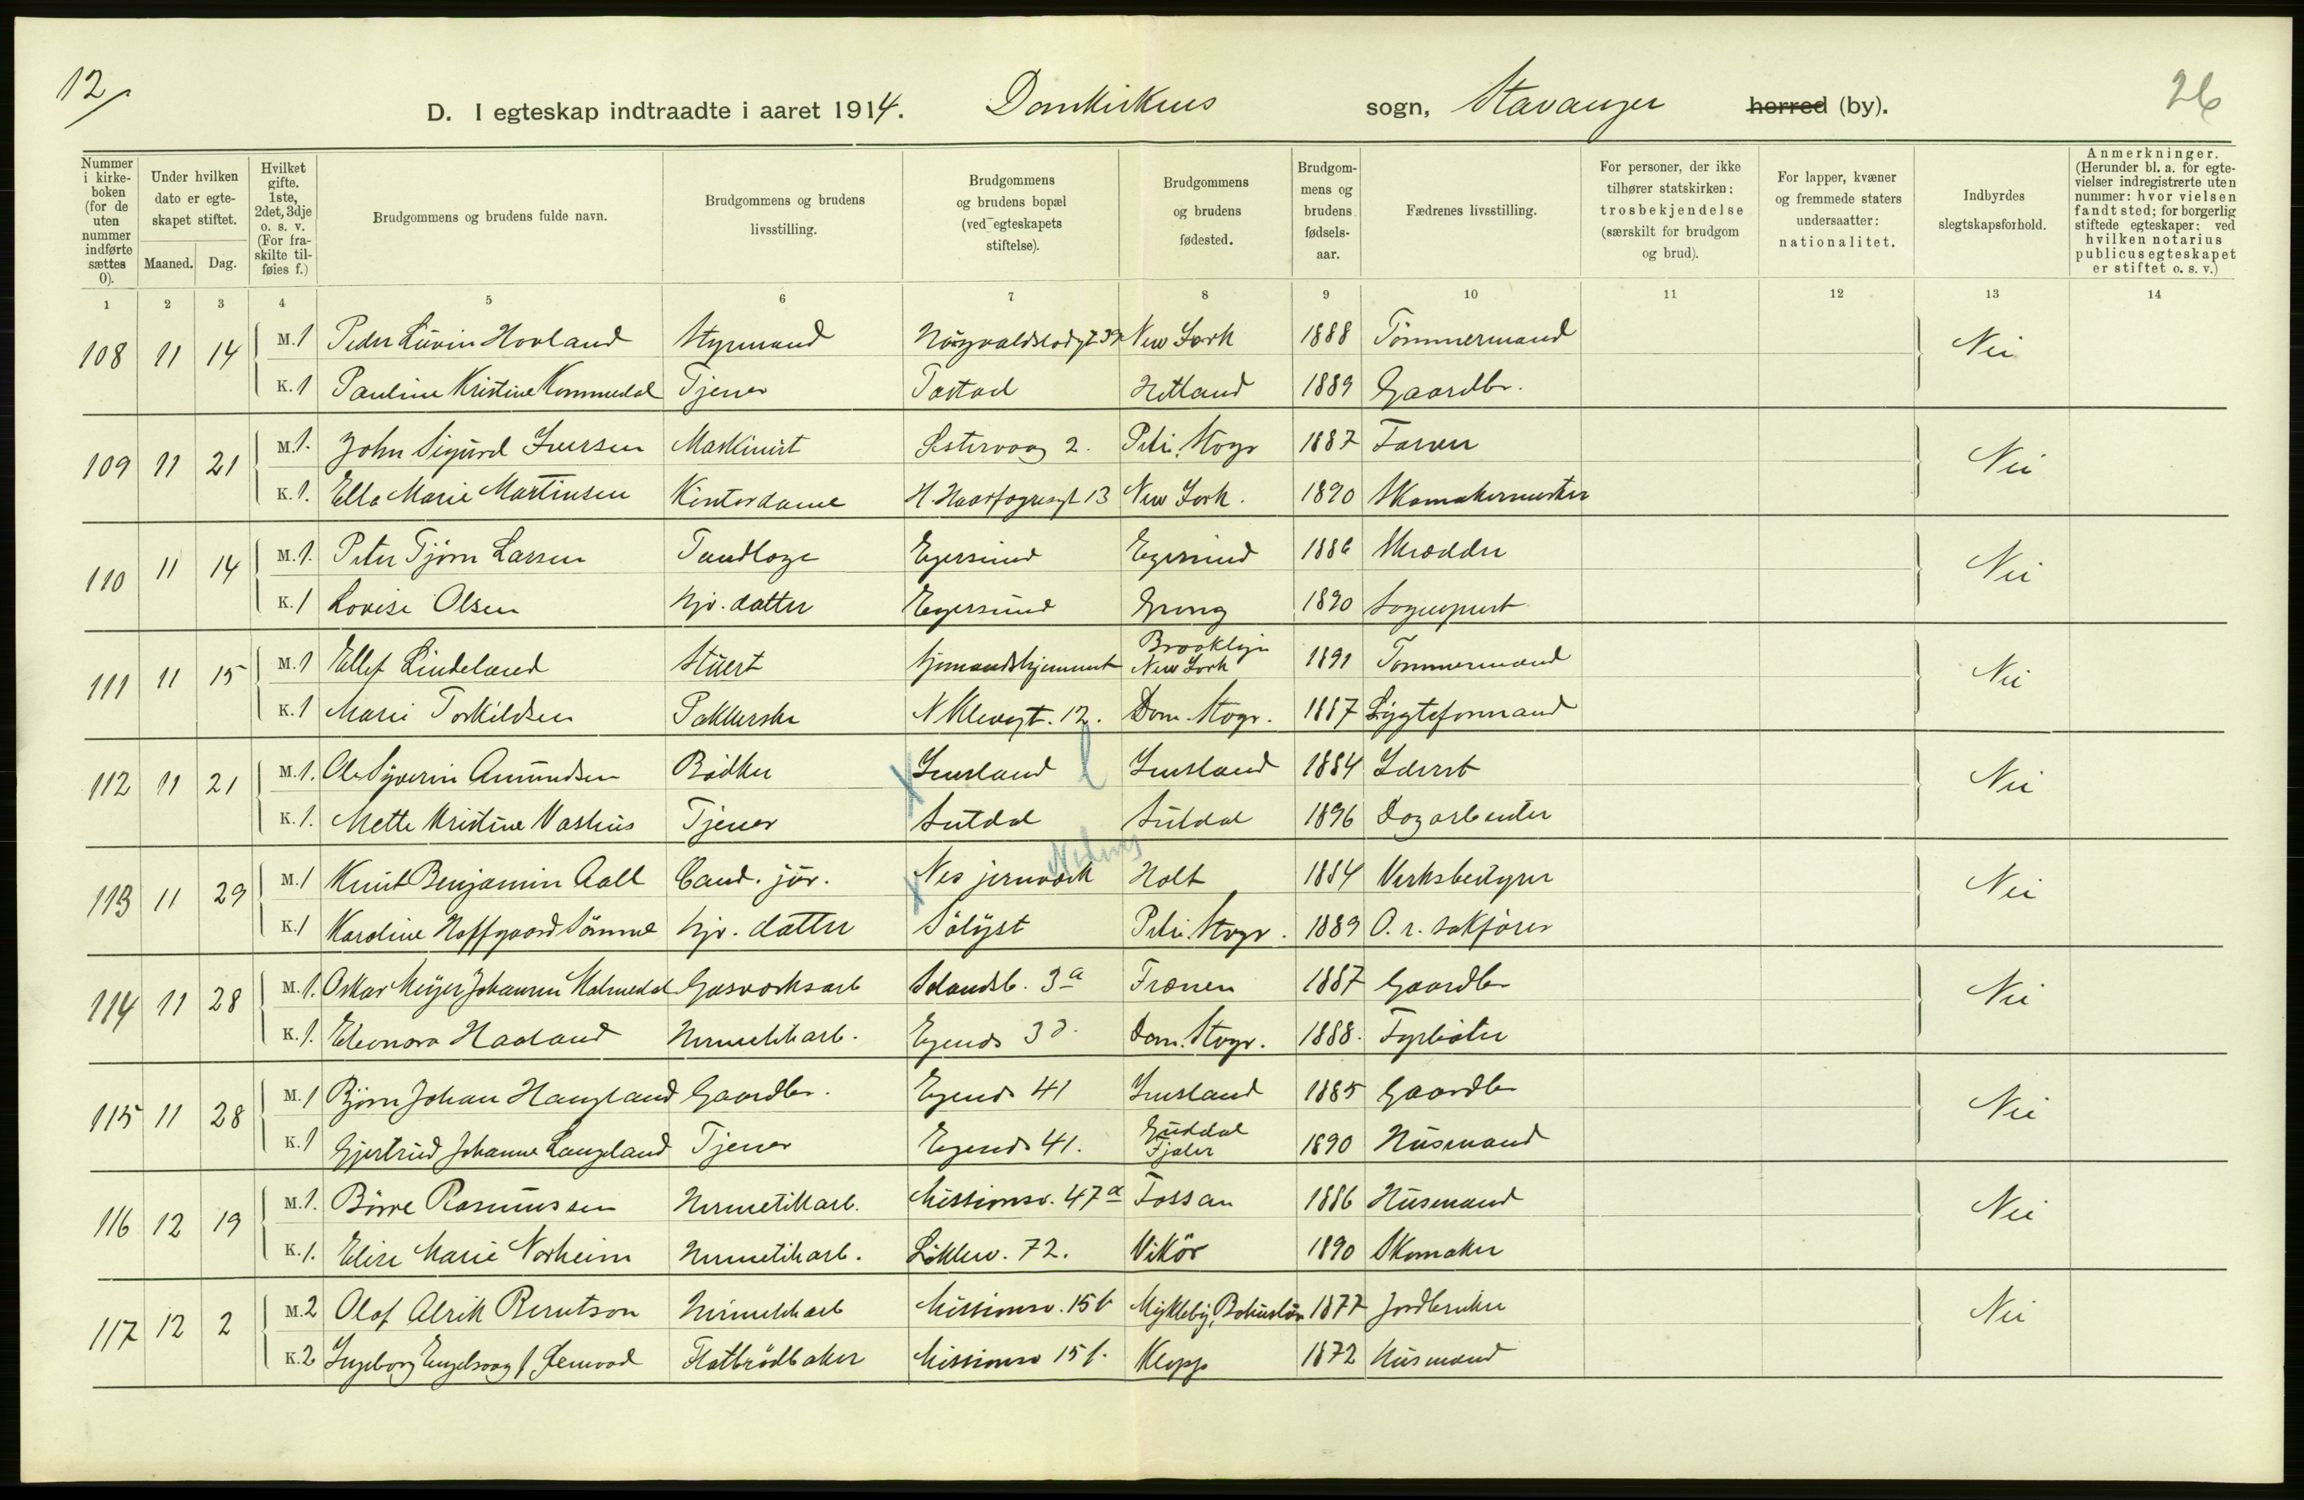 12/
26
D. I egteskap indtraadte i aaret 1914. Domkirkens sogn, Stavanger herred (by).
Nummer i kirke-boken (for de uten nummer indførte sættes 0).
Under hvilken dato er egte-skapet stiftet.
Maaned. Dag.
Hvilket gifte. 1ste, 2det, 3dje o. s. v. (For fra-skilte til-føies f.)
Brudgommens og brudens fulde navn.
Brudgommens og brudens livsstilling.
Brudgommens og brudens bopæl (ved egteskapets stiftelse).
Brudgommens og brudens fødested.
Brudgom-mens og brudens fødsels-aar.
Fædrenes livsstilling.
For personer, der ikke tilhører statskirken: trosbekjendelse (særskilt for brudgom og brud).
For lapper, kvæner og fremmede staters undersaatter: nationalitet.
Indbyrdes slegtskapsforhold.
Anmerkninger. (Herunder bl. a. for egte-vielser indregistrerte uten nummer: hvor vielsen fandt sted; for borgerlig stiftede egteskaper: ved hvilken notarius publicus egteskapet er stiftet o. s. v.)
1 2 3 4 5 6 7 8 9 10 11 12 13 14
108 11 14 M. 1 Peder Lüvin Hovland Styrmand New York 1888 Tømmermand Nei
K. 1 Pauline Kristine Kommedal Tjener Tastad Hetland 1889 Gaardbr.
109 11 21 M. 1. John Sigurd Iversen Maskinist Østervaag 2. Petri, Stvgr 1887 Farver Nei
K. 1. Ella Marie Martinsen Kontordame H. Haarfagresgt 13 New York. 1890 Skomakermester
110 11 14 M. 1. Peter Tjørn Larsen Tandlæge Egersund Egersund 1886 Skrædder Nei
K. 1 Lovise Olsen hjv. datter Egersund Grong 1890 Sogneprest
111 11 15 M. 1 Ellef Lindeland Stuert Sjømandshjemmet Brooklyn New York 1891 Tømmermand Nei
K. 1 Marie Torkildsen Pakkerske N Klevegt. 12. Dom. Stvgr. 1887 Lygteformand
112 11 21 M. 1. Ole Syverin Amundsen Bødker X Imsland l Imsland 1884 Inderst Nei
K. 1. Mette Kristine Vashus Tjener Suldal Suldal 1896 Dagarbeider
113 11 29 M. 1 Knut Benjamin Aall Cand. jur. X Nes jernverk Nedenes Holt 1884 Verksbestyrer Nei
K. 1 Karoline Hoffgaard Sømme hjv. datter Sølyst Petri Stvgr. 1889 O. r. sakfører
114 11 28 M. 1. Oskar Meyer Johansen Malmedal Gasverksarb Selandsb. 3a Frænen 1887 Gaardbr Nei
K. 1. Eleonora Haaland Hermetikkarb. Egends 33. Dom. Stvgr. 1888. Fyrbøter
115 11 28 M. 1 Bjørn Johan Haugland Gaardbr. Egends 41 Imsland 1885 Gaardbr Nei
K. 1 Gjertrud Johanne Langeland Tjener Egends 41. Guddal Fjaler 1890 Husmand
116 12 19 M. 1. Børre Rasmussen Hermetikkarb. Missionsv. 47a Fossan 1886 Husmand Nei
K. 1. Elise Marie Norheim Hermetikkarb. Løkkev. 72. Vikør 1890 Skomaker
117 12 2 M. 2 Olaf Alrik Berntson Hermetikkarb Missionsv. 15b Mykleby, Bohuslän 1877 Jordbruker Nei
K. 2 Ingeborg Engelsvaag f. Flatbrødbaker Missionsv 15b. Klepp 1872 Husmand